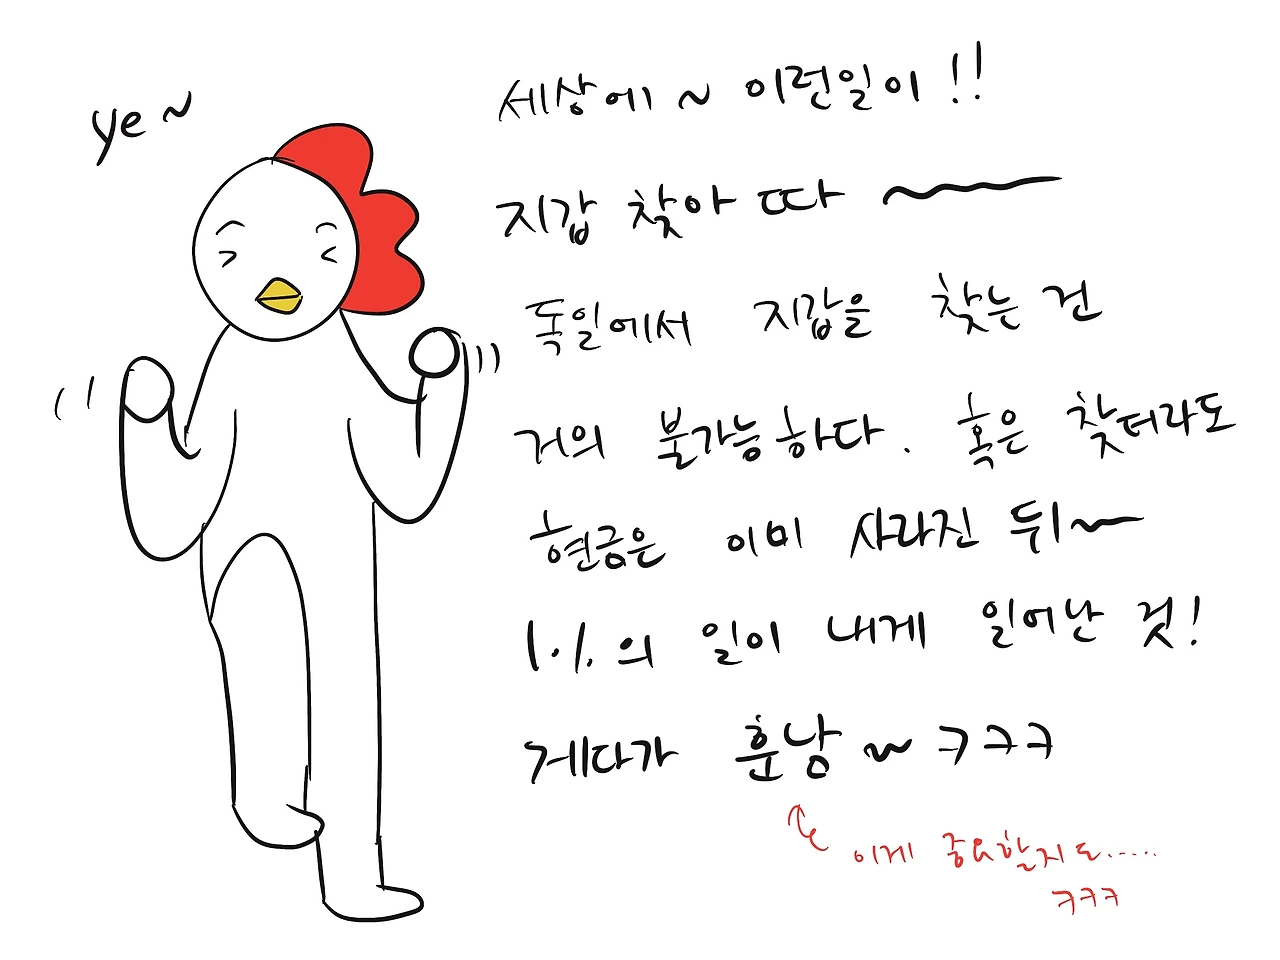 ye~
세상에~ 이런일이!!
지갑 찾아따~
독일에서 지갑을 찾는 건
거의 불가능하다. 혹은 찾더라도
현금은 이미 사라진 뒤~
1%의 일이 내게 일어난 것!
게다가 훈남~ ㅋㅋㅋ
이게 중요할지도.....
ㅋㅋㅋ